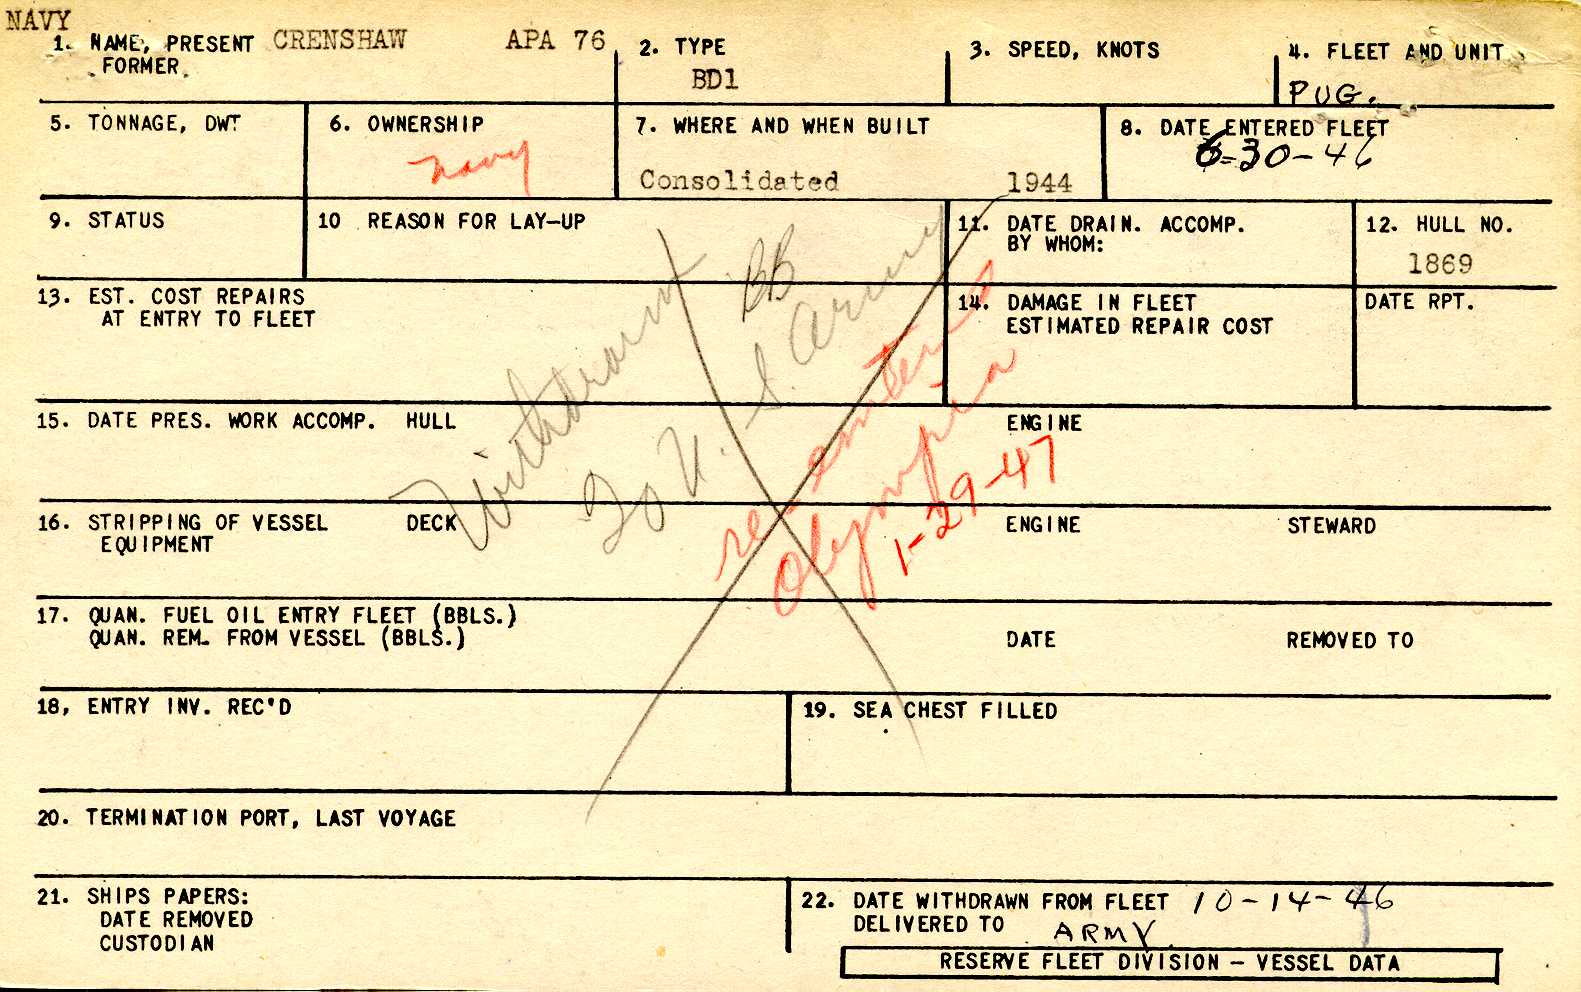 NAVY
1. NAME, PRESENT CRENSHAW APA 76
FORMER
2. TYPE
BD1
3. SPEED, KNOTS
4. FLEET AND UNIT
PUG.
5. TONNAGE, DWT
6. OWNERSHIP
Navy
7. WHERE AND WHEN BUILT
Consolidated 1944
8. DATE ENTERED FLEET
6-30-46
9. STATUS
10 REASON FOR LAY-UP
11. DATE DRAIN. ACCOMP.
BY WHOM:
12. HULL NO.
1869
13. EST. COST REPAIRS
AT ENTRY TO FLEET
14. DAMAGE IN FLEET
ESTIMATED REPAIR COST
DATE RPT.
Withdrawn
BB
To U. S. Army
re-entered
Olympia
1-29-47
15. DATE PRES. WORK ACCOMP. HULL ENGINE
16. STRIPPING OF VESSEL DECK ENGINE STEWARD
EQUIPMENT
17. QUAN. FUEL OIL ENTRY FLEET (BBLS.)
QUAN. REM. FROM VESSEL (BBLS.) DATE REMOVED TO
18, ENTRY INV. REC'D
19. SEA CHEST FILLED
20. TERMINATION PORT, LAST VOYAGE
21. SHIPS PAPERS:
DATE REMOVED
CUSTODIAN
22. DATE WITHDRAWN FROM FLEET 10-14-46
DELIVERED TO ARMY.
RESERVE FLEET DIVISION – VESSEL DATA